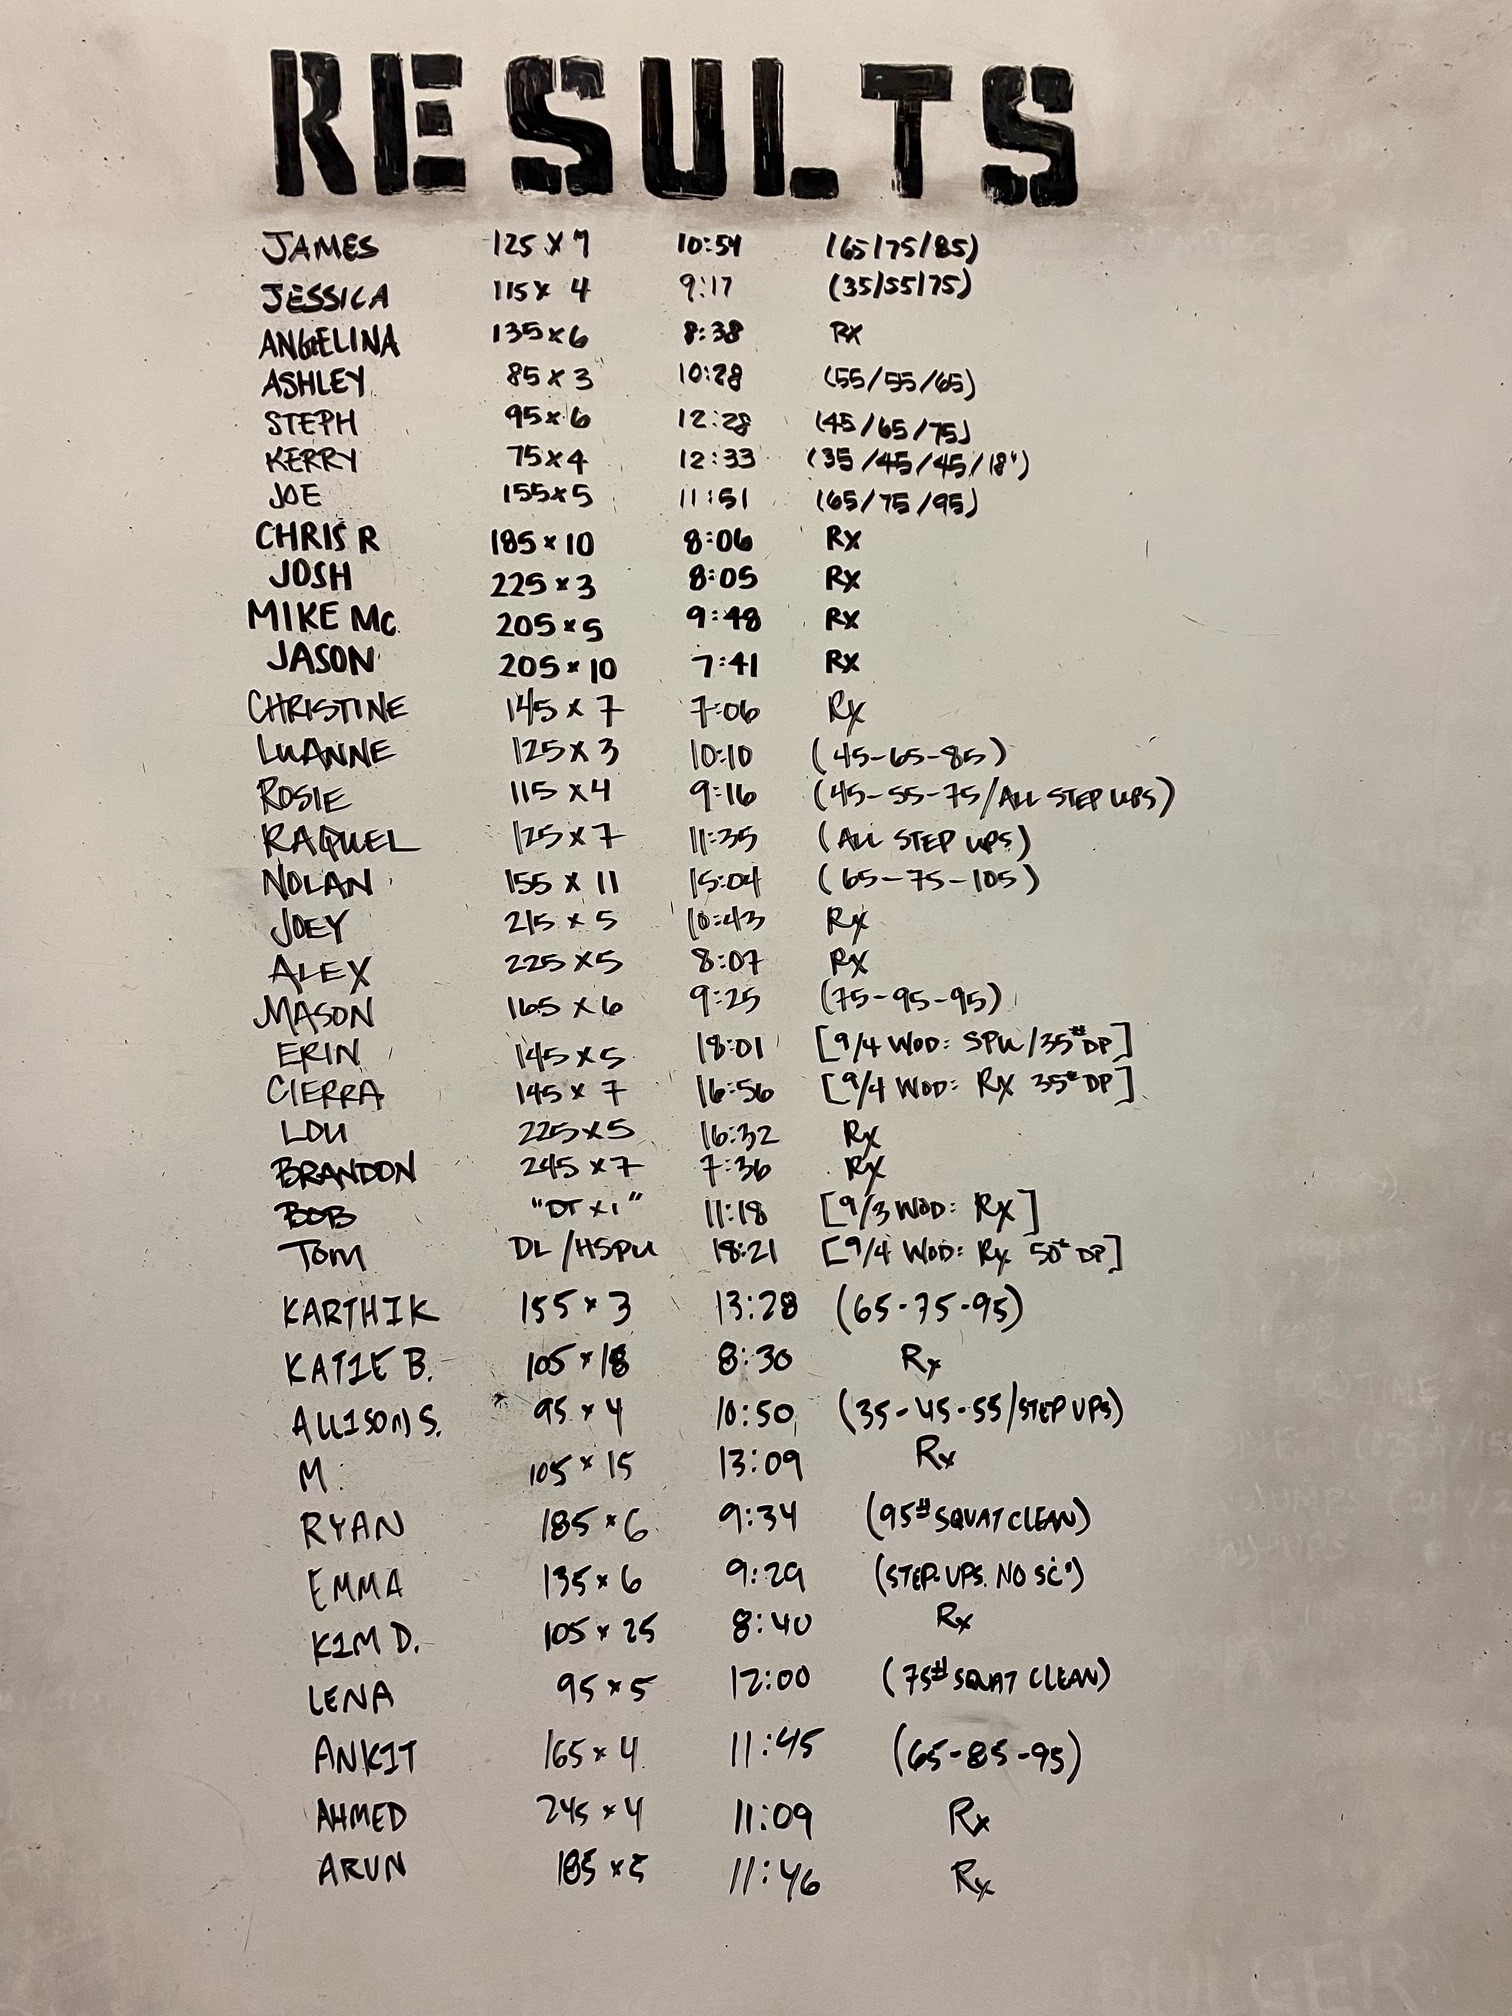 RESULTS
JAMES 125 x 7 10:54 (65/75/85)
JESSICA 115 x 4 9:17 (35/55/75)
ANGELINA 135 x 6 8:38 Rx
ASHLEY 85 x 3 10:28 (55/55/65)
STEPH 95 x 6 12:28 (45/65/75)
KERRY 75 x 4 12:33 (35/45/45/18")
JOE 155 x 5 11:51 (65/75/95)
CHRIS R 185 x 10 8:06 Rx
JOSH 225 x 3 8:05 Rx
MIKE Mc. 205 x 5 9:48 Rx
JASON 205 x 10 7:41 Rx
CHRISTINE 145 x 7 7:06 Rx
LUANNE 125 x 3 10:10 (45-65-85)
ROSIE 115 x 4 9:16 (45-55-75/ALL STEP UPS)
RAQUEL 125 x 7 11:35 (ALL STEP UPS)
NOLAN 155 x 11 15:04 (65-75-105)
JOEY 215 x 5 10:43 Rx
ALEX 225 x 5 8:07 Rx
MASON 165 x 6 9:25 (75-95-95)
ERIN 145 x 5 18:01 [9/4 WOD: SPU/35# DP]
CIERRA 145 x 7 16:56 [9/4 WOD: Rx 35# DP]
LOU 225 x 5 16:32 Rx
BRANDON 245 x 7 7:36 Rx
BOB "DT x 1" 11:18 [9/3 WOD: Rx]
TOM DL/HSPU 18:21 [9/4 WOD: Rx 50# DP]
KARTHIK 155 x 3 13:28 (65-75-95)
KATIE B. 105 x 18 8:30 Rx
ALLISON S. 95 x 4 10:50 (35-45-55/STEP UPS)
M. 105 x 15 13:09 Rx
RYAN 185 x 6 9:34 (95# SQUAT CLEAN)
EMMA 135 x 6 9:29 (STEP-UPS. NO SC's)
KIM D. 105 x 25 8:40 Rx
LENA 95 x 5 12:00 (75# SQUAT CLEAN)
ANKIT 165 x 4 11:45 (65-85-95)
AHMED 245 x 4 11:09 Rx
ARUN 185 x 5 11:46 Rx